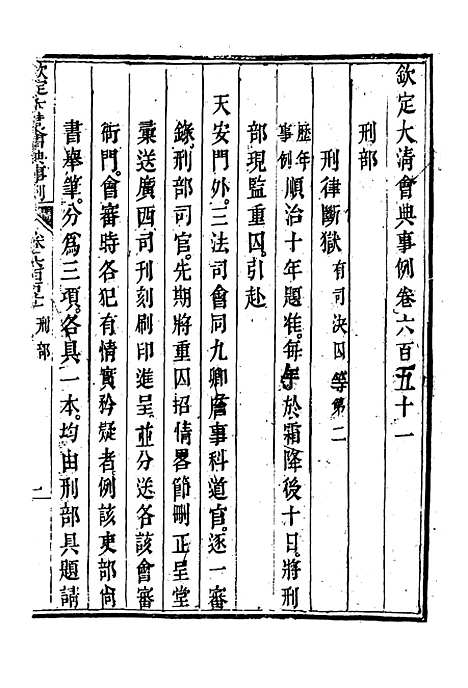 欽定大清會典事例卷六百五十一
刑部
刑律斷獄有司決囚等第二
歷年事例順治十年題准。每年於霜降後十日。將刑
部現監重囚。引赴
天安門外。三法司會同九卿詹事科道官。逐一審
錄。刑部司官。先期將重囚招情畧節刪正呈堂
彙送廣西司刊刻刷印進呈。並分送各該會審
衙門。會審時各犯有情實矜疑者例該吏部尙
書舉筆。分爲三項。各具一本。均由刑部具題請
欽定大清會典事例
刑部
一